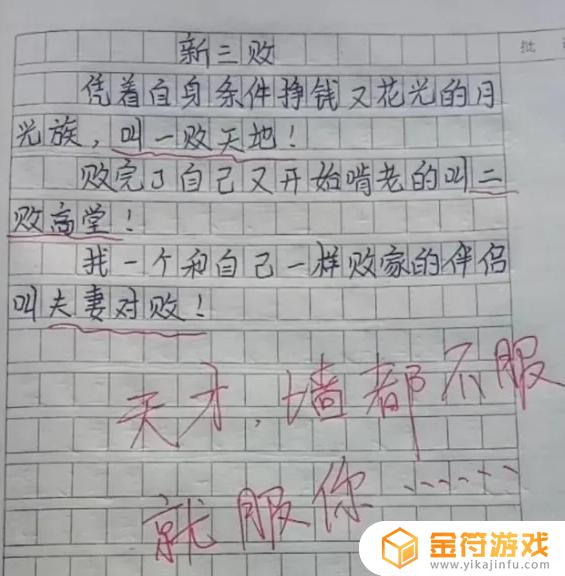 新三败
批
凭着自身条件挣钱又花光的月
光族，叫一败天地！
败完了自己又开始啃老的叫二
败高堂！
我一个和自己一样败家的伴侣
叫夫妻对败！
天才，墙都不服
就服你……
金符游戏
www.yikajinfu.com